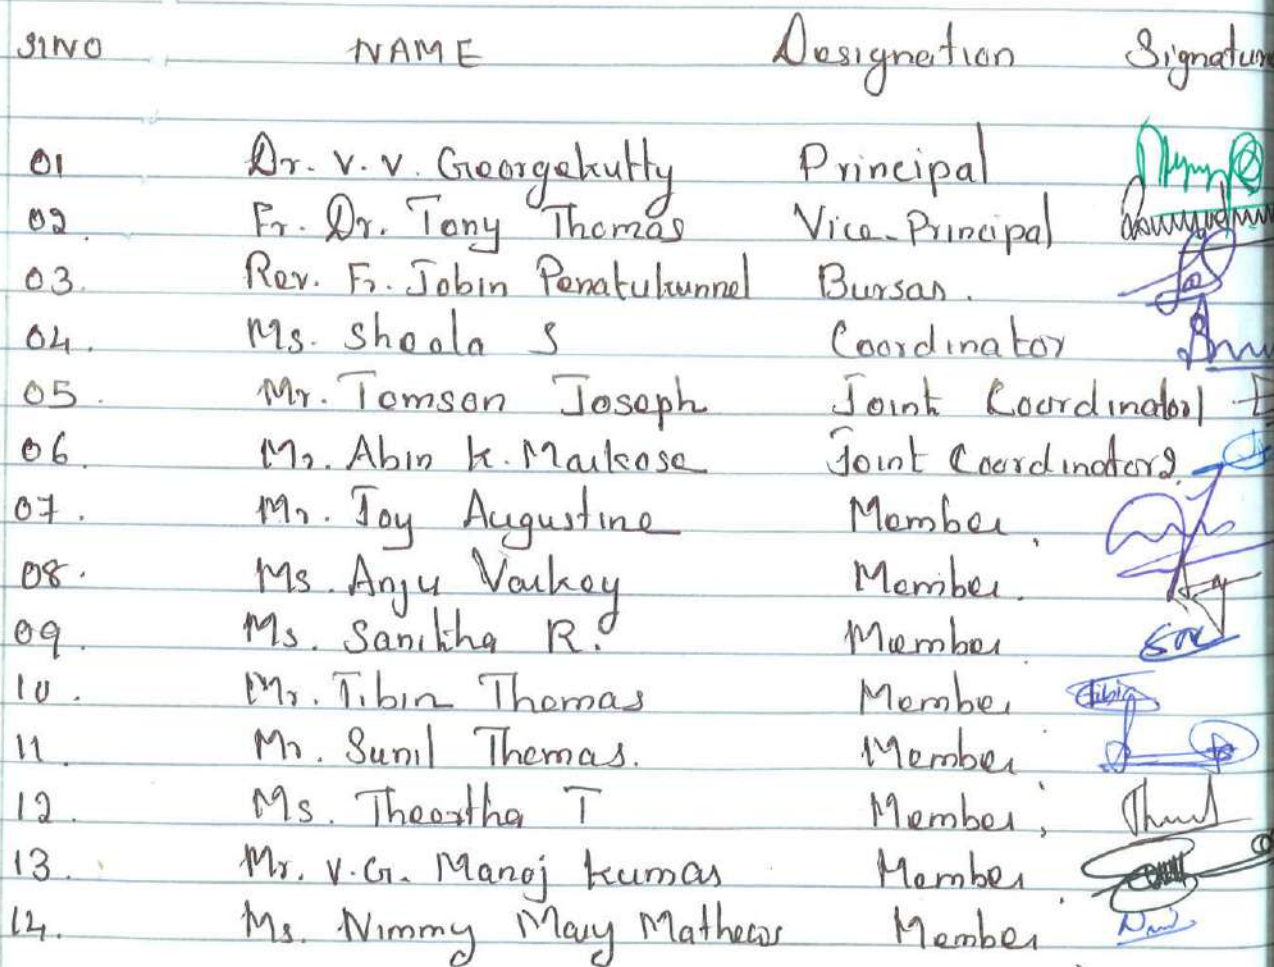 SlNO NAME Designation Signatur
01 Dr. V. V. Georgekutty Principal
02. Fr. Dr. Tony Thomas Vice-Principal
03. Rev. Fr. Jobin Penatukunnel Bursar.
04. Ms. Sheela S Coordinator
05. Mr. Tomson Joseph Joint Coordinator 1
06. Mr. Abin K. Markose Joint Coordinator 2
07. Mr. Joy Augustine Member
08. Ms. Anju Varkey Member.
09. Ms. Sanitha R. Member
10. Mr. Tibin Thomas Member Tibin
11. Mr. Sunil Thomas. Member
12. Ms. Theertha T Member
13. Mr. V.G. Manoj Kumar Member
14. Ms. Nimmy Mary Mathews Member